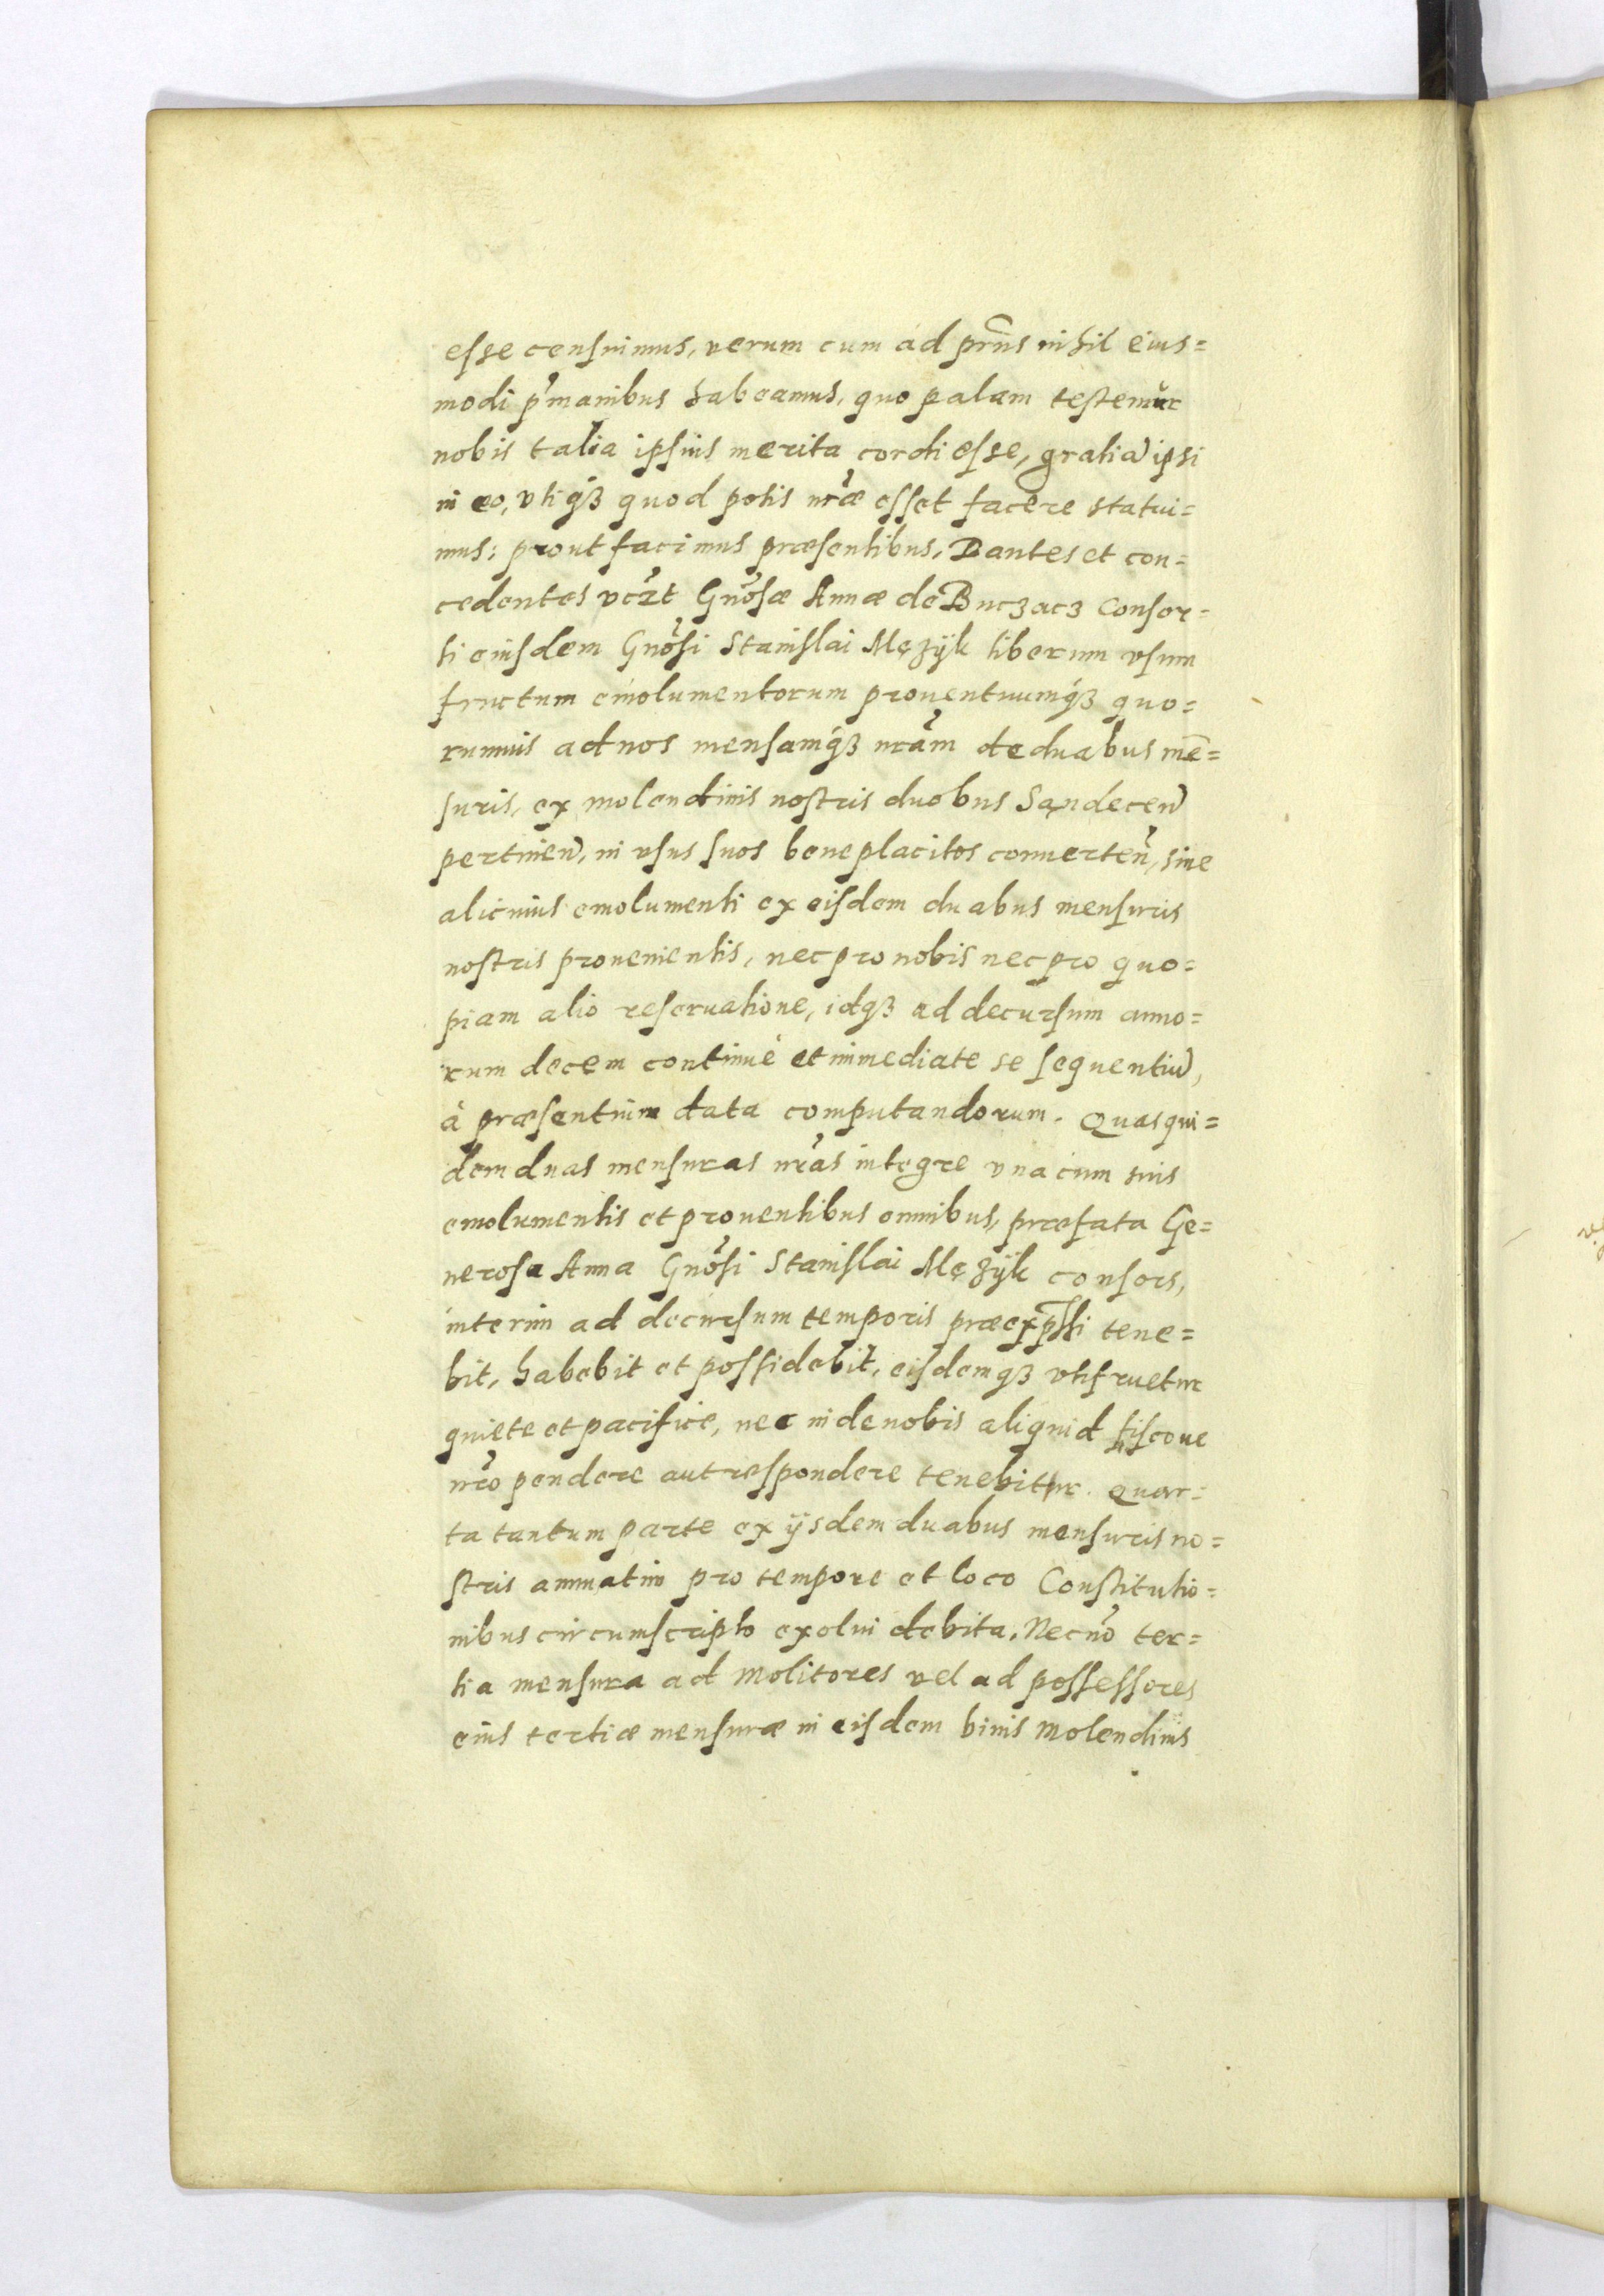 esse censuimus, verum cum ad pr̃ns nihil eius=
modi p̾manibus habeamus, quo palam testemur
nobis talia ipsius merita cordi esse, gratiã ipsi
in eo, vtiq́ȝ quod potis nr̃æ esset facere statui=
mus: prout facimus præsentibus, Dantes et con=
cedentes vt Gnõsæ Annæ de Buczacz Consor=
ti eiusdem Gnõsi Stanislai Mężÿk liberum vsum
fructum emolumentorum prouentuumq́ȝ quo=
rumuis ad nos mensamq́ȝ nrãm de duabus mẽ=
suris, ex molendinis nostris duobus Sandecen̄
pertinen̄, in vsus suos beneplacitos conuerten̄, sine
alicuius emolumenti ex eisdem duabus mensuris
nostris prouenientis, nec pro nobis nec pro quo=
piam alio reseruatione, idqȝ ad decursum anno=
rum decem continuè et immediate se sequentiũ,
à præsentium data computandorum. Quas qui=
dem duas mensuras nrãs integre vna cum suis
emolumentis et prouentibus omnibus, præfata Ge=
nerosa Anna Gnõsi Stanislai Mężÿk consors,
interim ad decursum temporis præexp̃ssi tene=
bit, habebit et possidebit, eisdemqȝ vtifruetur
quiete et pacifice, nec inde nobis aliquid fiscoue
nrõ pendere aut respondere tenebitur. Quar=
ta tantum parte ex ijsdem duabus mensuris no=
stris annuatim pro tempore et loco Constitutio=
nibus circumscripto exolui debita. Necnõ ter=
tia mensura ad Molitores vel ad possessores
eius tertiæ mensuræ in eisdem binis Molendinis